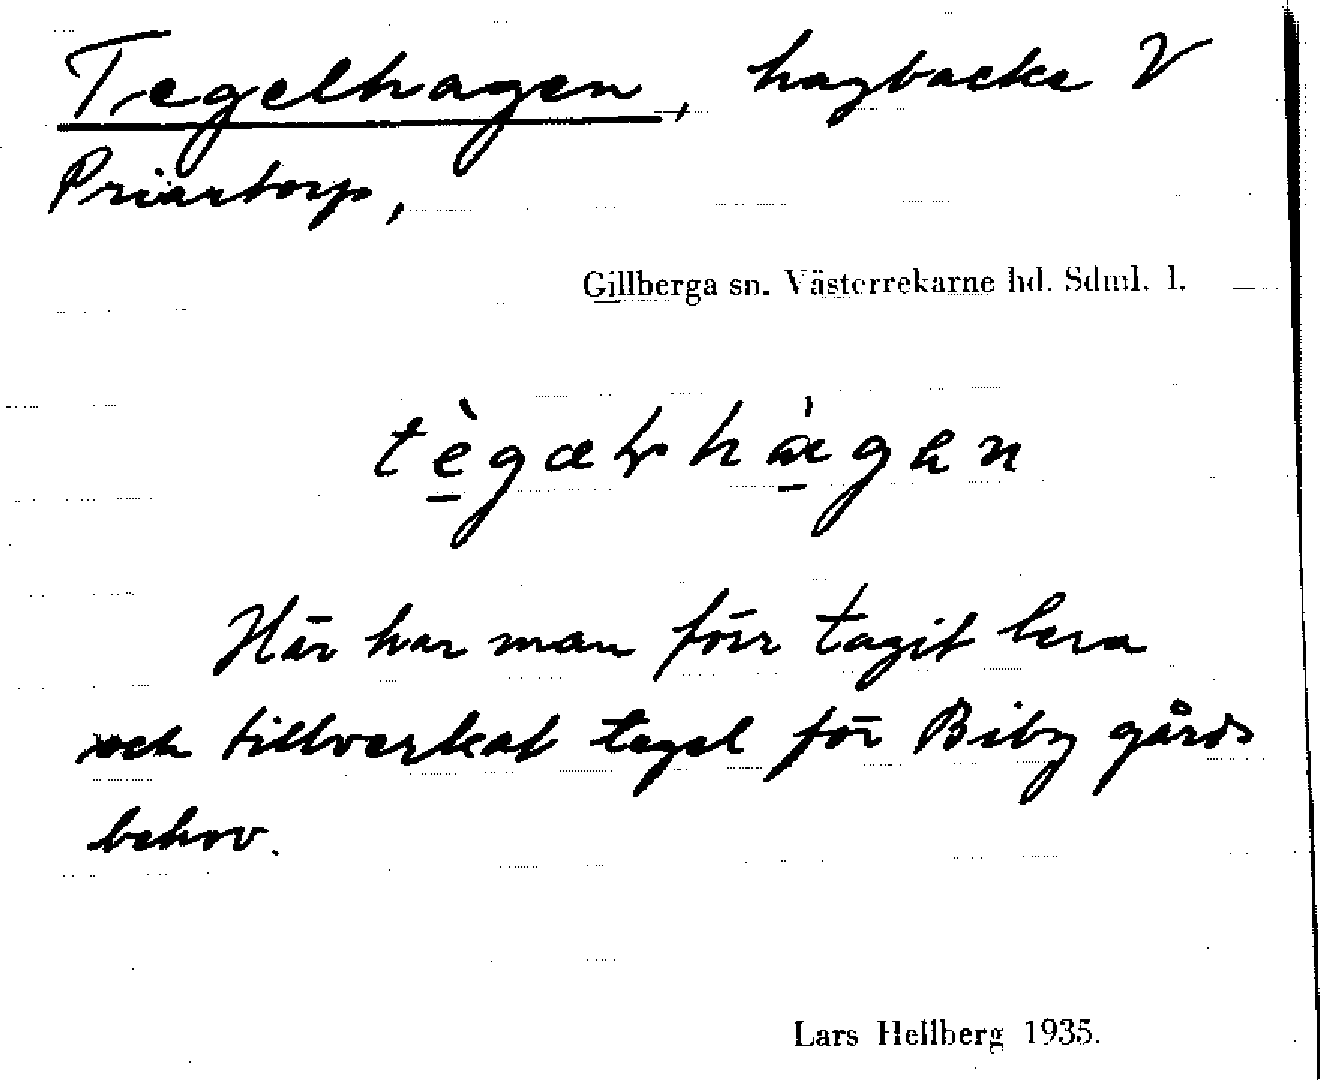 Tegelhagen, hagbacke V
Priartorp,
Gillberga sn. Västerrekarne hd. Sdml. l.
tègæLhágan
Här har man förr tagit lera
och tillverkat tegel för Biby gårds
behov.
Lars Hellberg 1935.